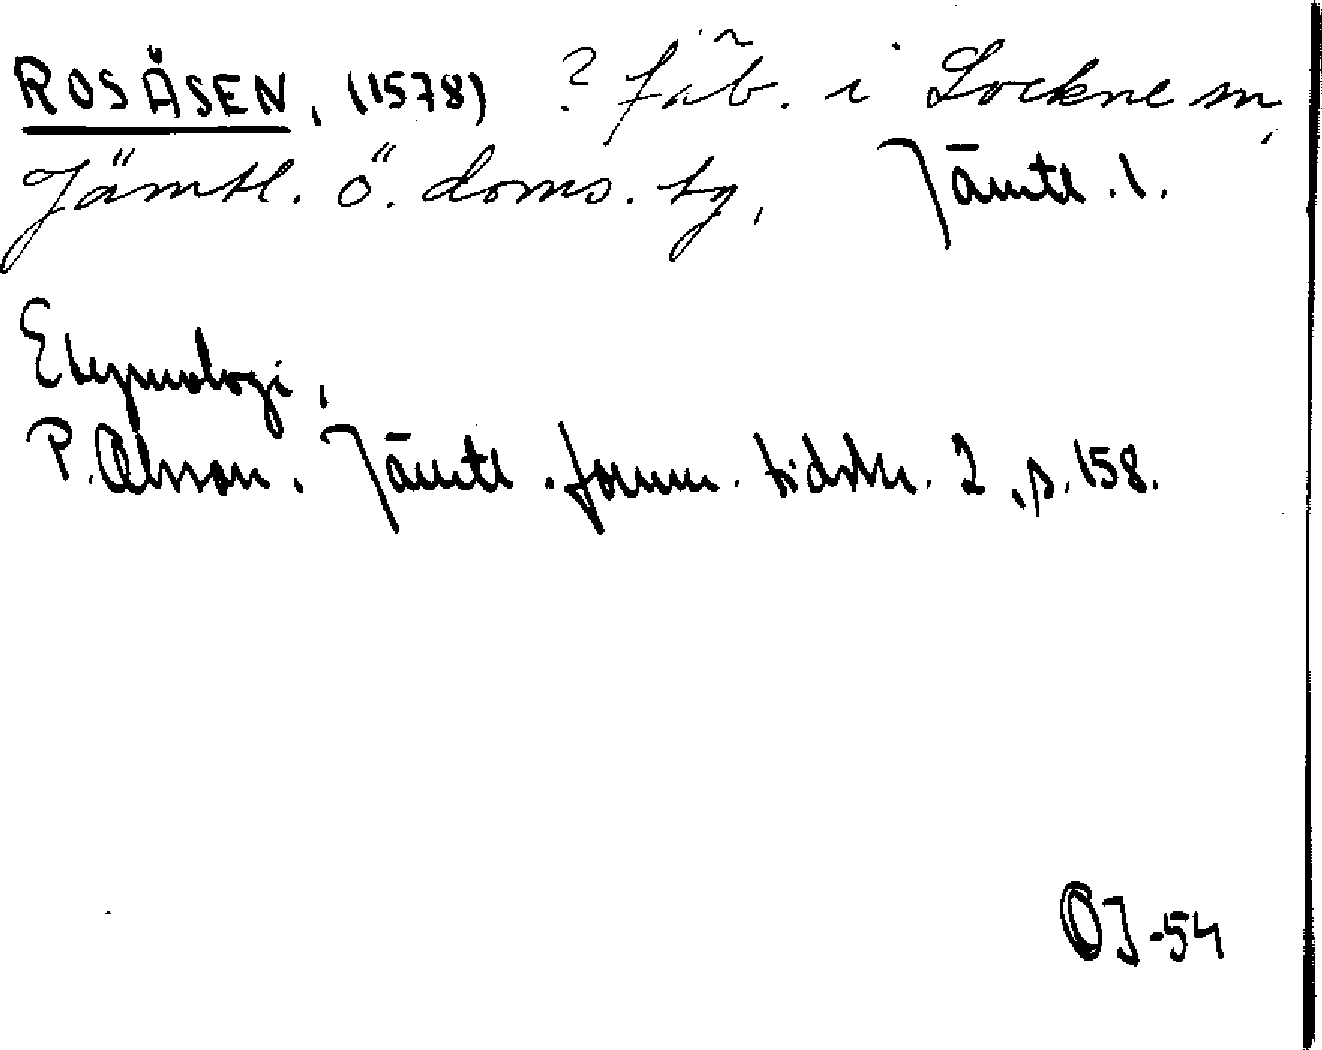 ROSÅSEN, (1578) ? fäb. i Lockne sn,
Jämtl. ö. doms. tg, Jämtl. l.
Etymologi,
P. Olsson. Jämtl. fornm. tidskr. 2, s. 158.
OJ-54